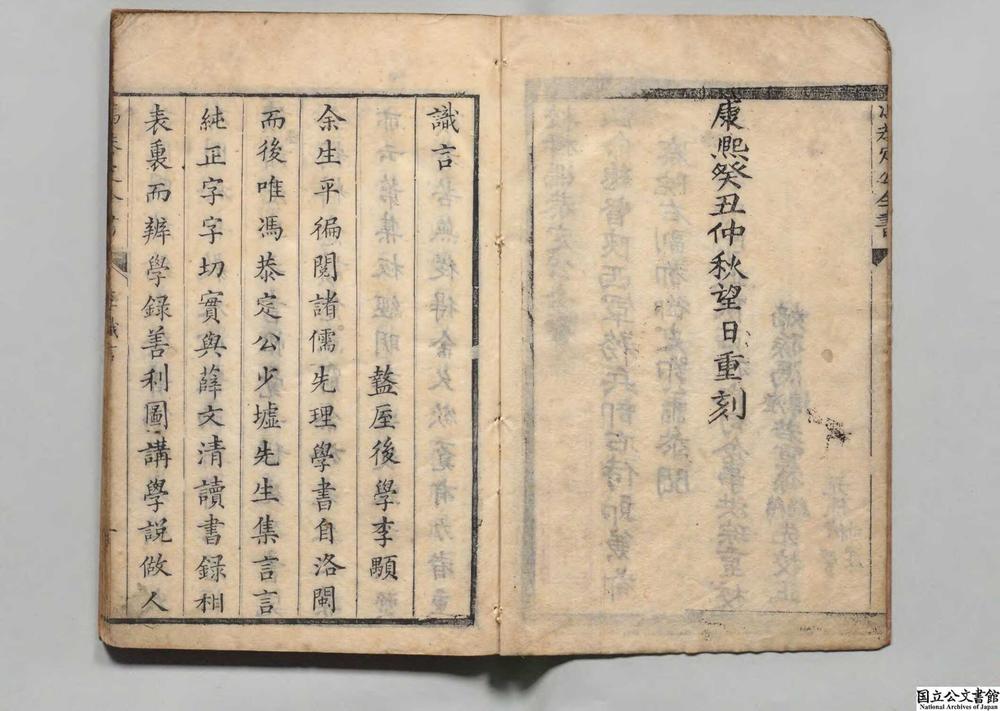 康熙癸丑仲秋望日重刻
識言
盩厔後學李顒
余生平徧閱諸儒先理學書自洛閩
而後唯馮恭定公少墟先生集言言
純正字字切實與薛文清讀書錄相
表裏而辨學録善利圖講學說做人
国立公文書館
National Archives of Japan